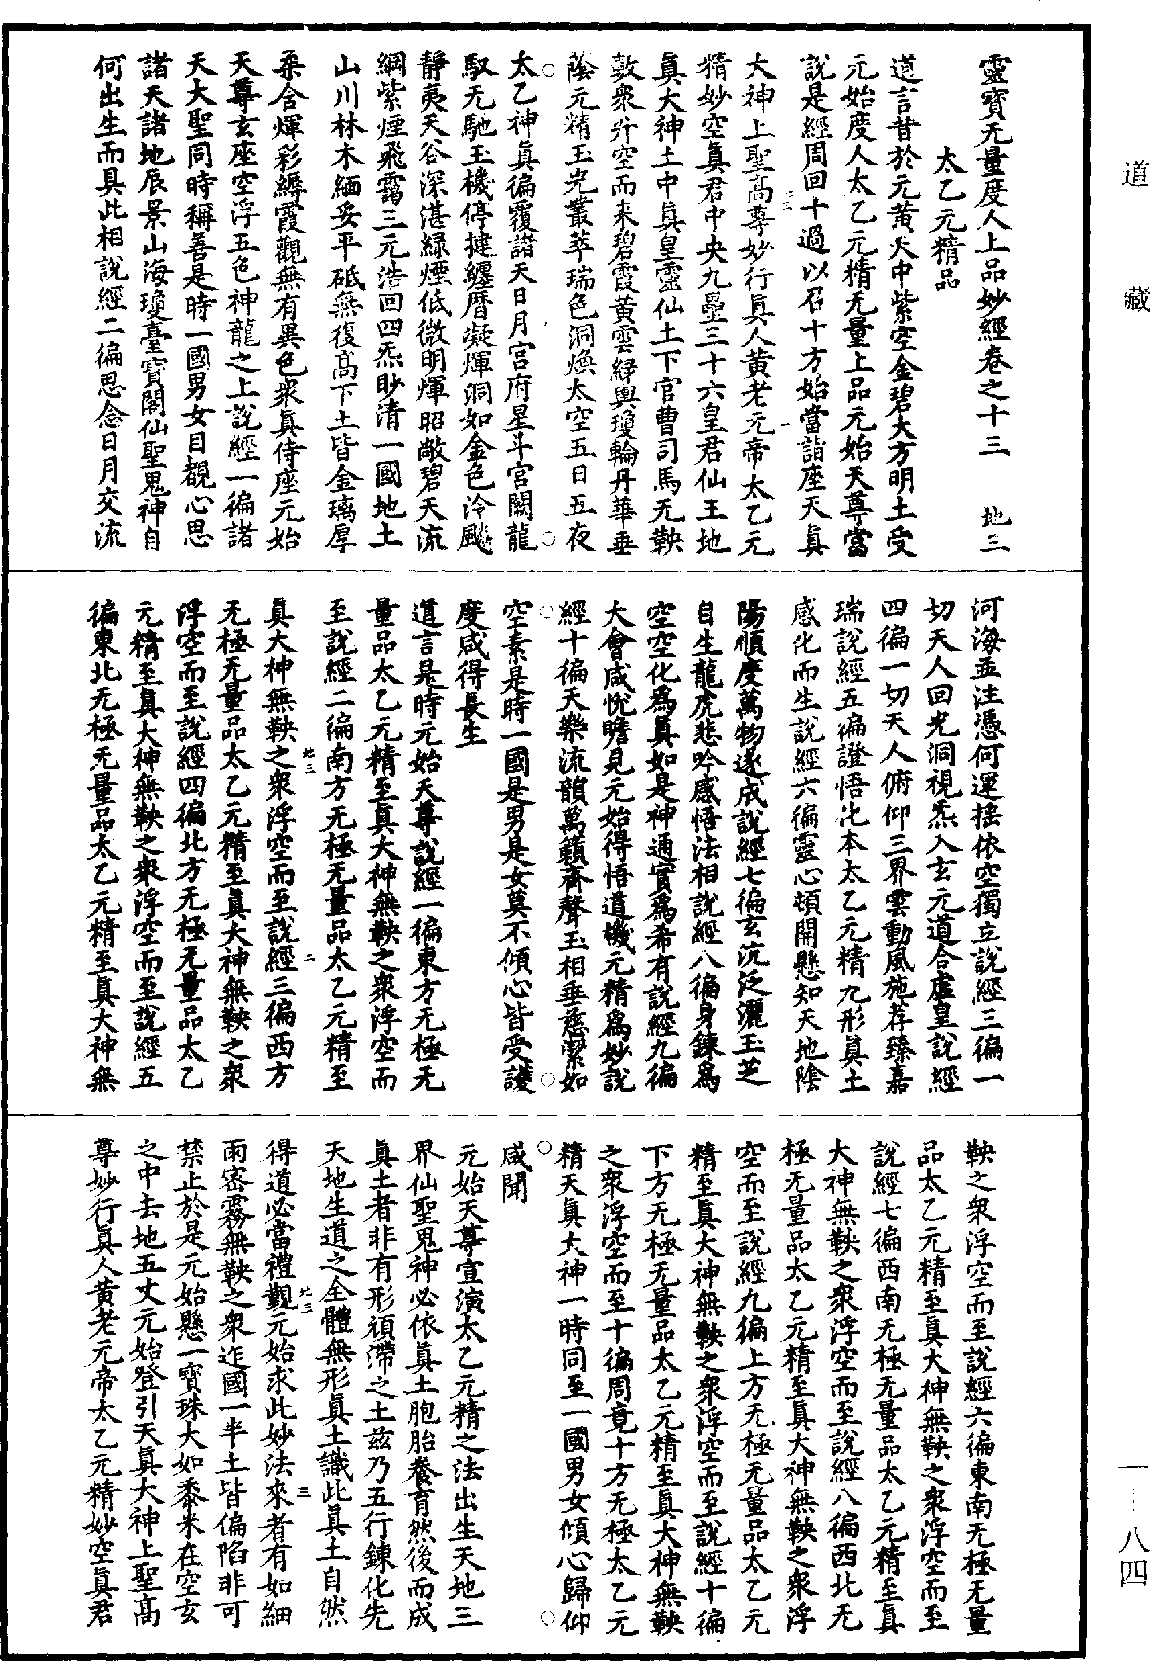 道藏
靈寶无量度人上品妙經卷之十三　地三
太乙元精品
道言昔於元黃天中紫空金碧大方明土受
元始度人太乙元精无量上品元始天尊當
說是經周回十過以召十方始當詣座天真
大神上聖高尊妙行真人黃老元帝太乙元
精妙空真君中央九壘三十六皇君仙王地
真大神土中真皇靈仙土下官曹司馬无鞅
數衆浮空而來碧霞黃雲綠輿瓊輪丹華垂
蔭元精玉光叢萃瑞色洞煥太空五日五夜
太乙神真徧覆諸天日月宮府星斗宮闕龍
馭无馳玉機停揵纏曆凝煇洞如金色泠颷
靜夷天谷深湛綠煙低微明煇昭敞碧天流
綱紫煙飛靄三元浩回四炁眇清一國地土
山川林木緬妥平砥無復髙下土皆金璃厚
柔含煇彩縟霞觀無有異色衆真侍座元始
天尊玄座空浮五色神龍之上說經一徧諸
天大聖同時稱善是時一國男女目覩心思
諸天諸地辰景山海瓊臺寶閣仙聖鬼神自
何出生而具此相說經二徧思念日月交流
河海並注憑何運揺依空獨立說經三徧一
切天人回光洞視炁入玄元道合虛皇說經
四徧一切天人俯仰三界雲動風施荐臻嘉
瑞說經五徧證悟化本太乙元精九形真土
感化而生說經六徧靈心頓開懸知天地陰
陽順度萬物遂成說經七徧玄沆泛灑玉芝
自生龍虎悲吟感悟法相說經八徧身鍊爲
空空化爲真如是神通實爲希有說經九徧
大會咸悅瞻見元始得悟道機元精爲妙說
經十徧天樂流韻萬籟齊聲玉相垂慈潔如
空素是時一國是男是女莫不傾心皆受護
度咸得長生
道言是時元始天尊說經一徧東方无極无
量品太乙元精至真大神無鞅之衆浮空而
至說經二徧南方无極无量品太乙元精至
真大神無鞅之衆浮空而至說經三徧西方
无極无量品太乙元精至真大神無鞅之衆
浮空而至說經四徧北方无極无量品太乙
元精至真大神無鞅之衆浮空而至說經五
徧東北无極无量品太乙元精至真大神無
鞅之衆浮空而至說經六徧東南无極无量
品太乙元精至真大神無鞅之衆浮空而至
說經七徧西南无極无量品太乙元精至真
大神無鞅之衆浮空而至說經八徧西北无
極无量品太乙元精至真大神無鞅之衆浮
空而至說經九徧上方无極无量品太乙元
精至真大神無鞅之衆浮空而至說經十徧
下方无極无量品太乙元精至真大神無鞅
之衆浮空而至十徧周竟十方无極太乙元
精天真大神一時同至一國男女傾心歸仰
咸聞
元始天尊宣演太乙元精之法出生天地三
界仙聖鬼神必依真土胞胎養育然後而成
真土者非有形碩滯之土茲乃五行鍊化先
天地生道之全體無形真土識此真土自然
得道必當禮覲元始求此妙法來者有如細
雨密霧無鞅之衆迮國一半土皆偏陷非可
禁止於是元始懸一寶珠大如黍米在空玄
之中去地五丈元始登引天真大神上聖髙
尊妙行真人黃老元帝太乙元精妙空真君
一—八四